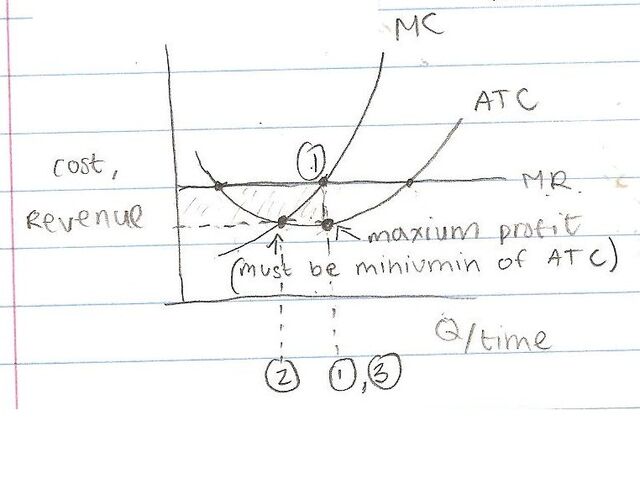 MC
ATC
①
cost,
Revenue
MR.
maxium profit
(must be miniumin of ATC)
Q/time
② ①,③